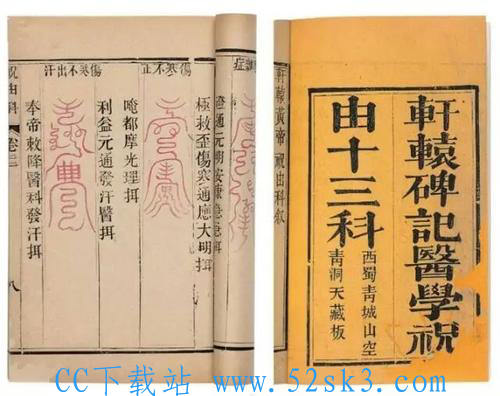 軒轅碑記醫學祝
由十三科
西蜀青城山空
青洞天藏板
軒轅黃帝祝由科叙
極救歪傷突通應大明挕
傷寒不止
唵都摩光理挕
利益元通發汗醫挕
傷寒不出汗
奉帝敕降醫科發汗挕
祝由科
卷之三
八
CC下载站 www.52sk3.com